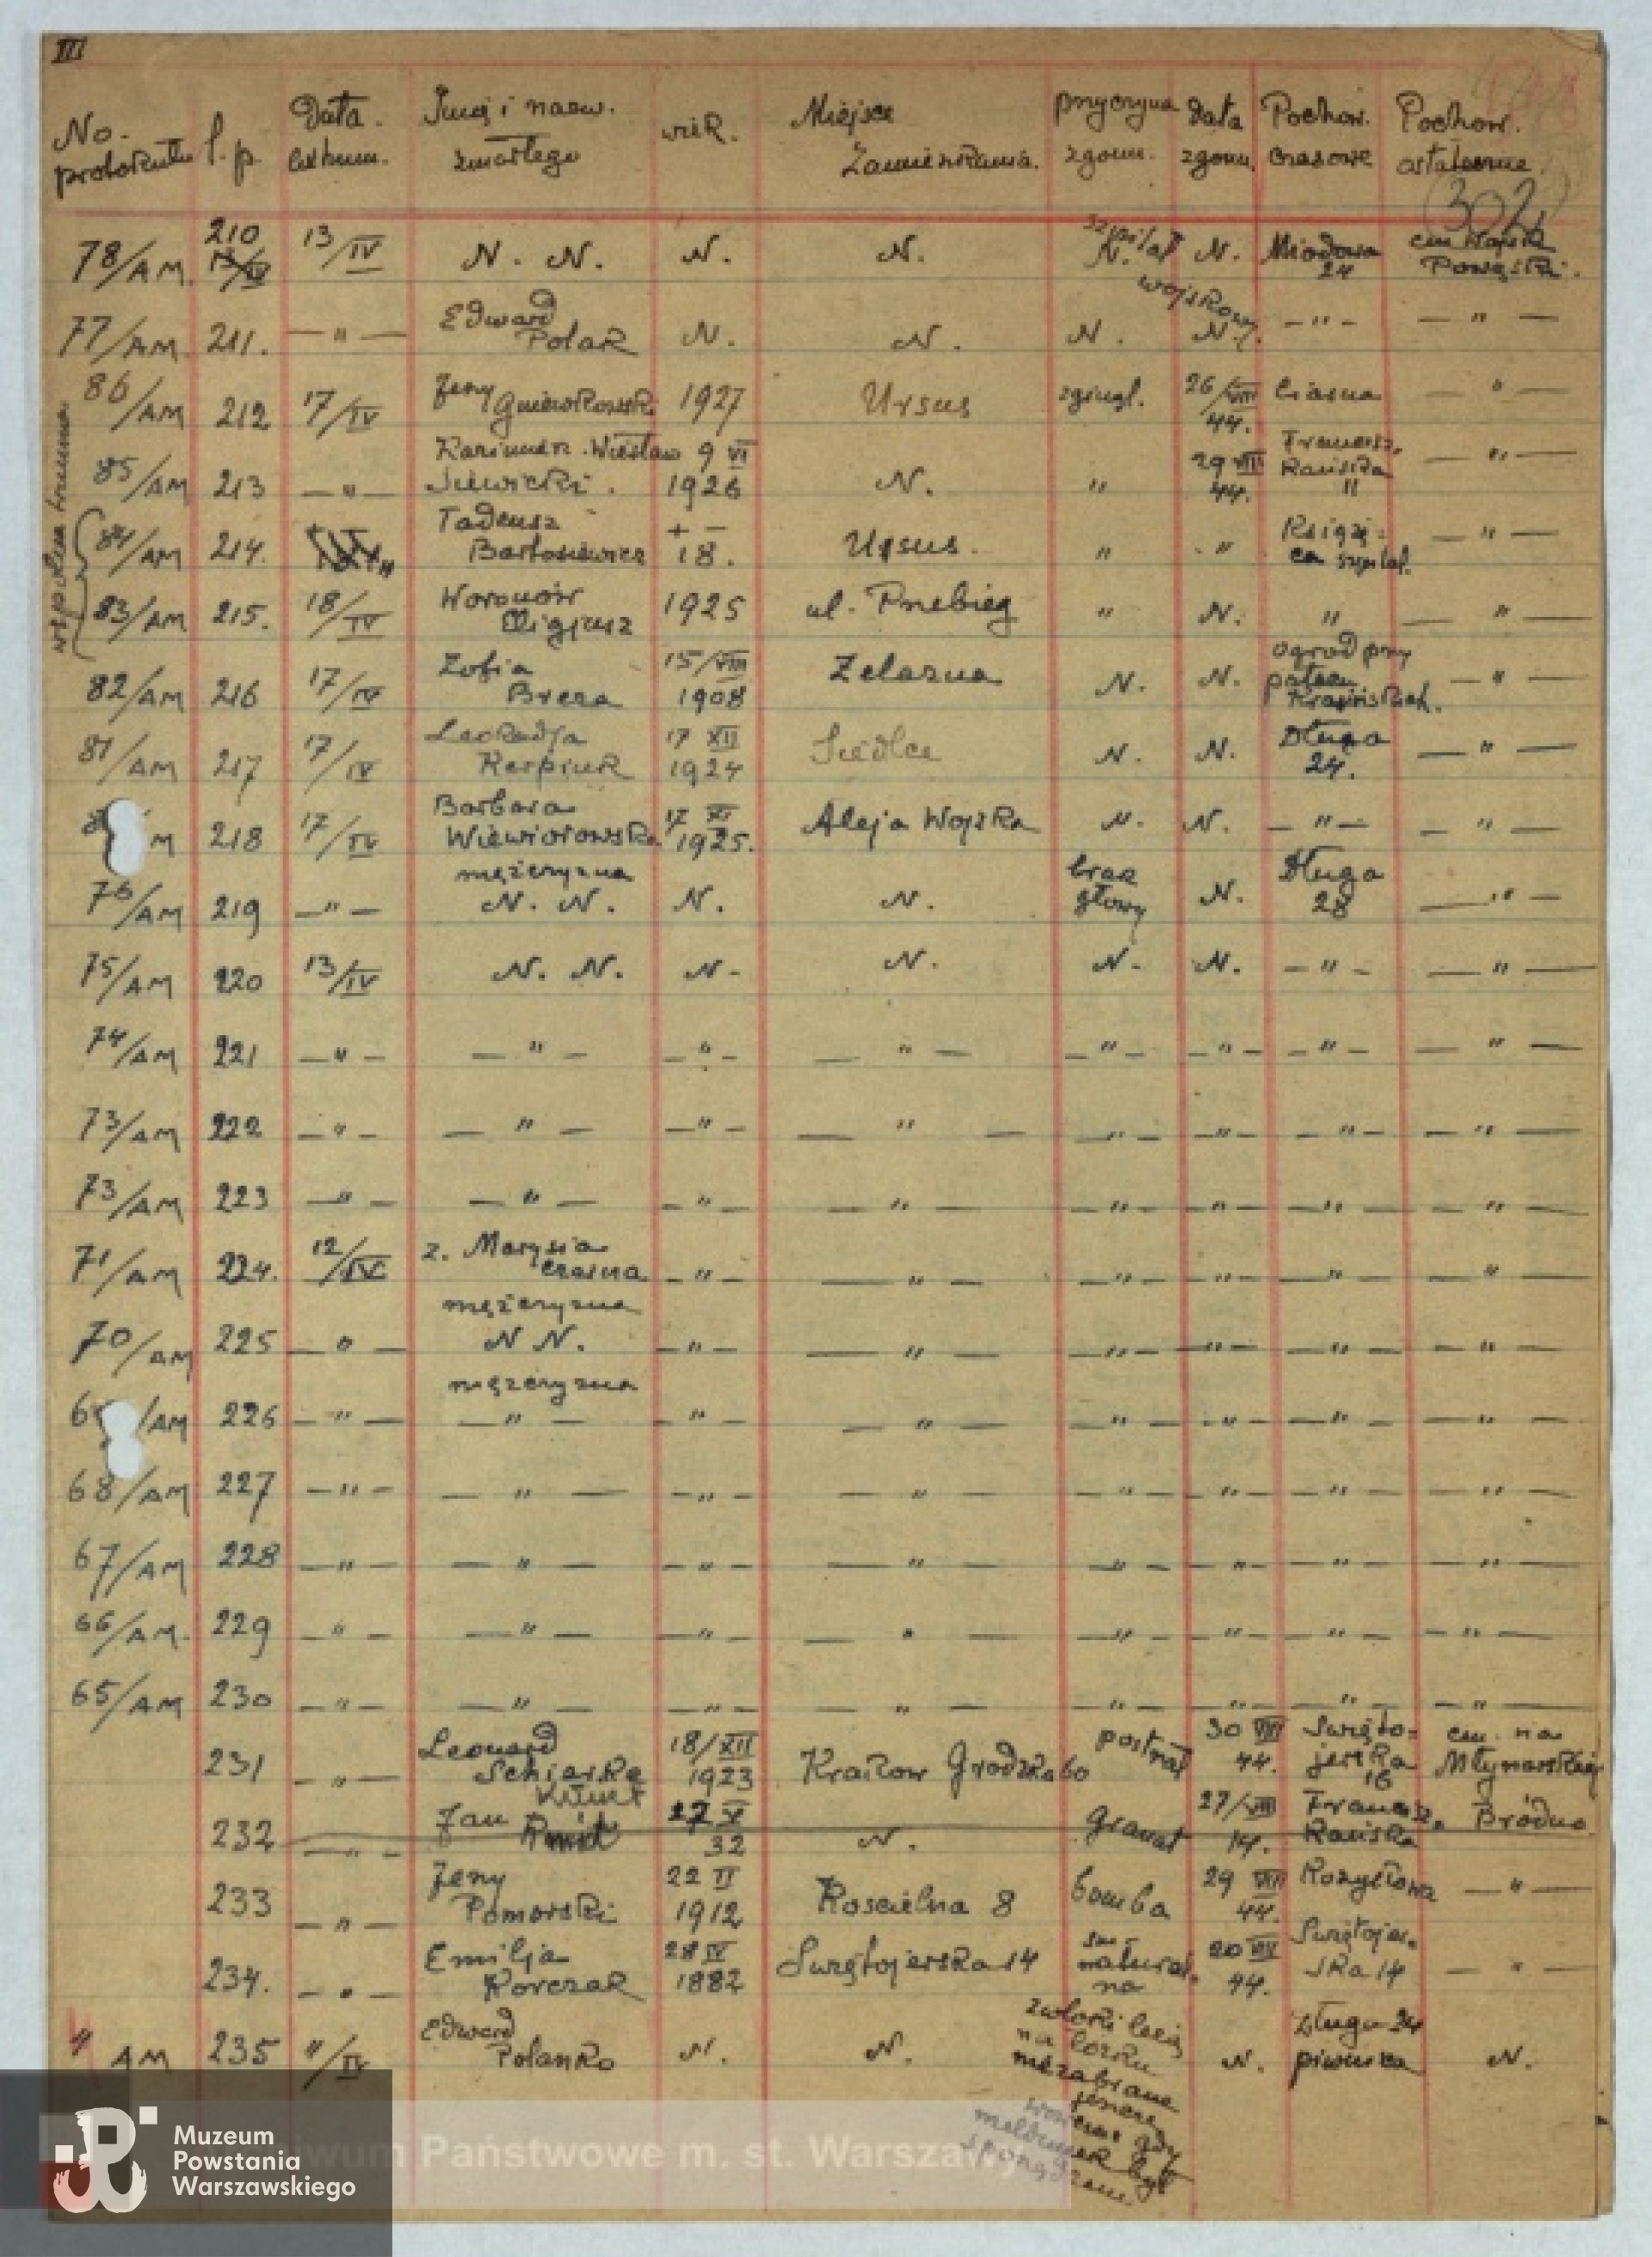 III
No. protokułu l.p. Data exhum. Imię i nazw. zmarłego wiek. Miejsce Zamieszkania. przyczyna zgonu. data zgonu. Pochow. czasowe Pochow. ostateczne.
302
78/AM. 210 13/IV N. N. N. N. szpital N. wojskowy N. Miodowa 24 cm Wojsk Powązki.
77/AM. 211. — " — Edward Polak N. N. N. N. — " — — " —
86/AM 212 17/IV Jerzy Gniewkowski 1927 Ursus zginął. 26/VIII 44. Ciasna — " —
85/AM 213 — " — Kazimierz. Wiesław 9 VI 1926 N. " 29 VIII 44. Francisz. kańska " — " —
wspólna trumna
84/AM 214. Tadeusz Bartosiewicz + — 18. Ursus. " " szpital. — " —
83/AM 215. 18/IV Woronów Eligjusz 1925 ul. Przebieg " N. " — " —
82/AM 216 17/IV Zofia Breza 15/VIII 1908 Żelazna N. N. ogród przy pałacu Krasińskich. — " —
81/AM 217 17/IV Leokadja Karpiuk 17 XII 1924 Siedlce N. N. Długa 24. — " —
M 218 17/IV Barbara Wiewiórowska 17 XI 1925. Aleja Wojska N. N. — " — — " —
76/AM 219 — " — mężczyzna N. N. N. N. brak głowy N. Długa 28 — " —
75/AM 220 13/IV N. N. N. N. N. N. — " — — " —
74/AM 221 — " — — " — — " — — " — — " — — " — — " — — " —
73/AM 222 — " — — " — — " — — " — — " — — " — — " — — " —
73/AM 223 — " — — " — — " — — " — — " — — " — — " — — " —
71/AM 224. 12/IV z. Marysia czarna — " — — " — — " — — " — — " — — " —
70/AM 225 — " — mężczyzna N N. — " — — " — — " — — " — — " — — " —
6 /AM 226 — " — mężczyzna — " — — " — — " — — " — — " — — " — — " —
68/AM 227 — " — — " — — " — — " — — " — — " — — " — — " —
67/AM 228 — " — — " — — " — — " — — " — — " — — " — — " —
66/AM. 229 — " — — " — — " — — " — — " — — " — — " — — " —
65/AM 230 — " — — " — — " — — " — — " — — " — — " — — " —
231 — " — Leonard 18/XII 1923 Kraków Grodzka 60 postrzał 30 VIII 44. Święto-jerska 16 cm. na Młynarskiej
232 — " — Jan 27 V 32 N. granat 27/VIII 44. Francisz. kańska Bródno
233 — " — Jerzy Pomorski 22 II 1912 Kościelna 8 bomba 29 VIII 44. — " —
234. — " — Emilja Korczak 28 IV 1882 Świętojerska 14 śm. natural. na 20 VIII 44. Świętojer. ska 14 — " —
" AM 235 "/IV Edward Polanko N. N. zwłoki leżą na łóżku niezabrane jeszcze gdy meldunek był N. Długa 24 piwnica N.
Archiwum Państwowe m. st. Warszawy
Muzeum
Powstania
Warszawskiego